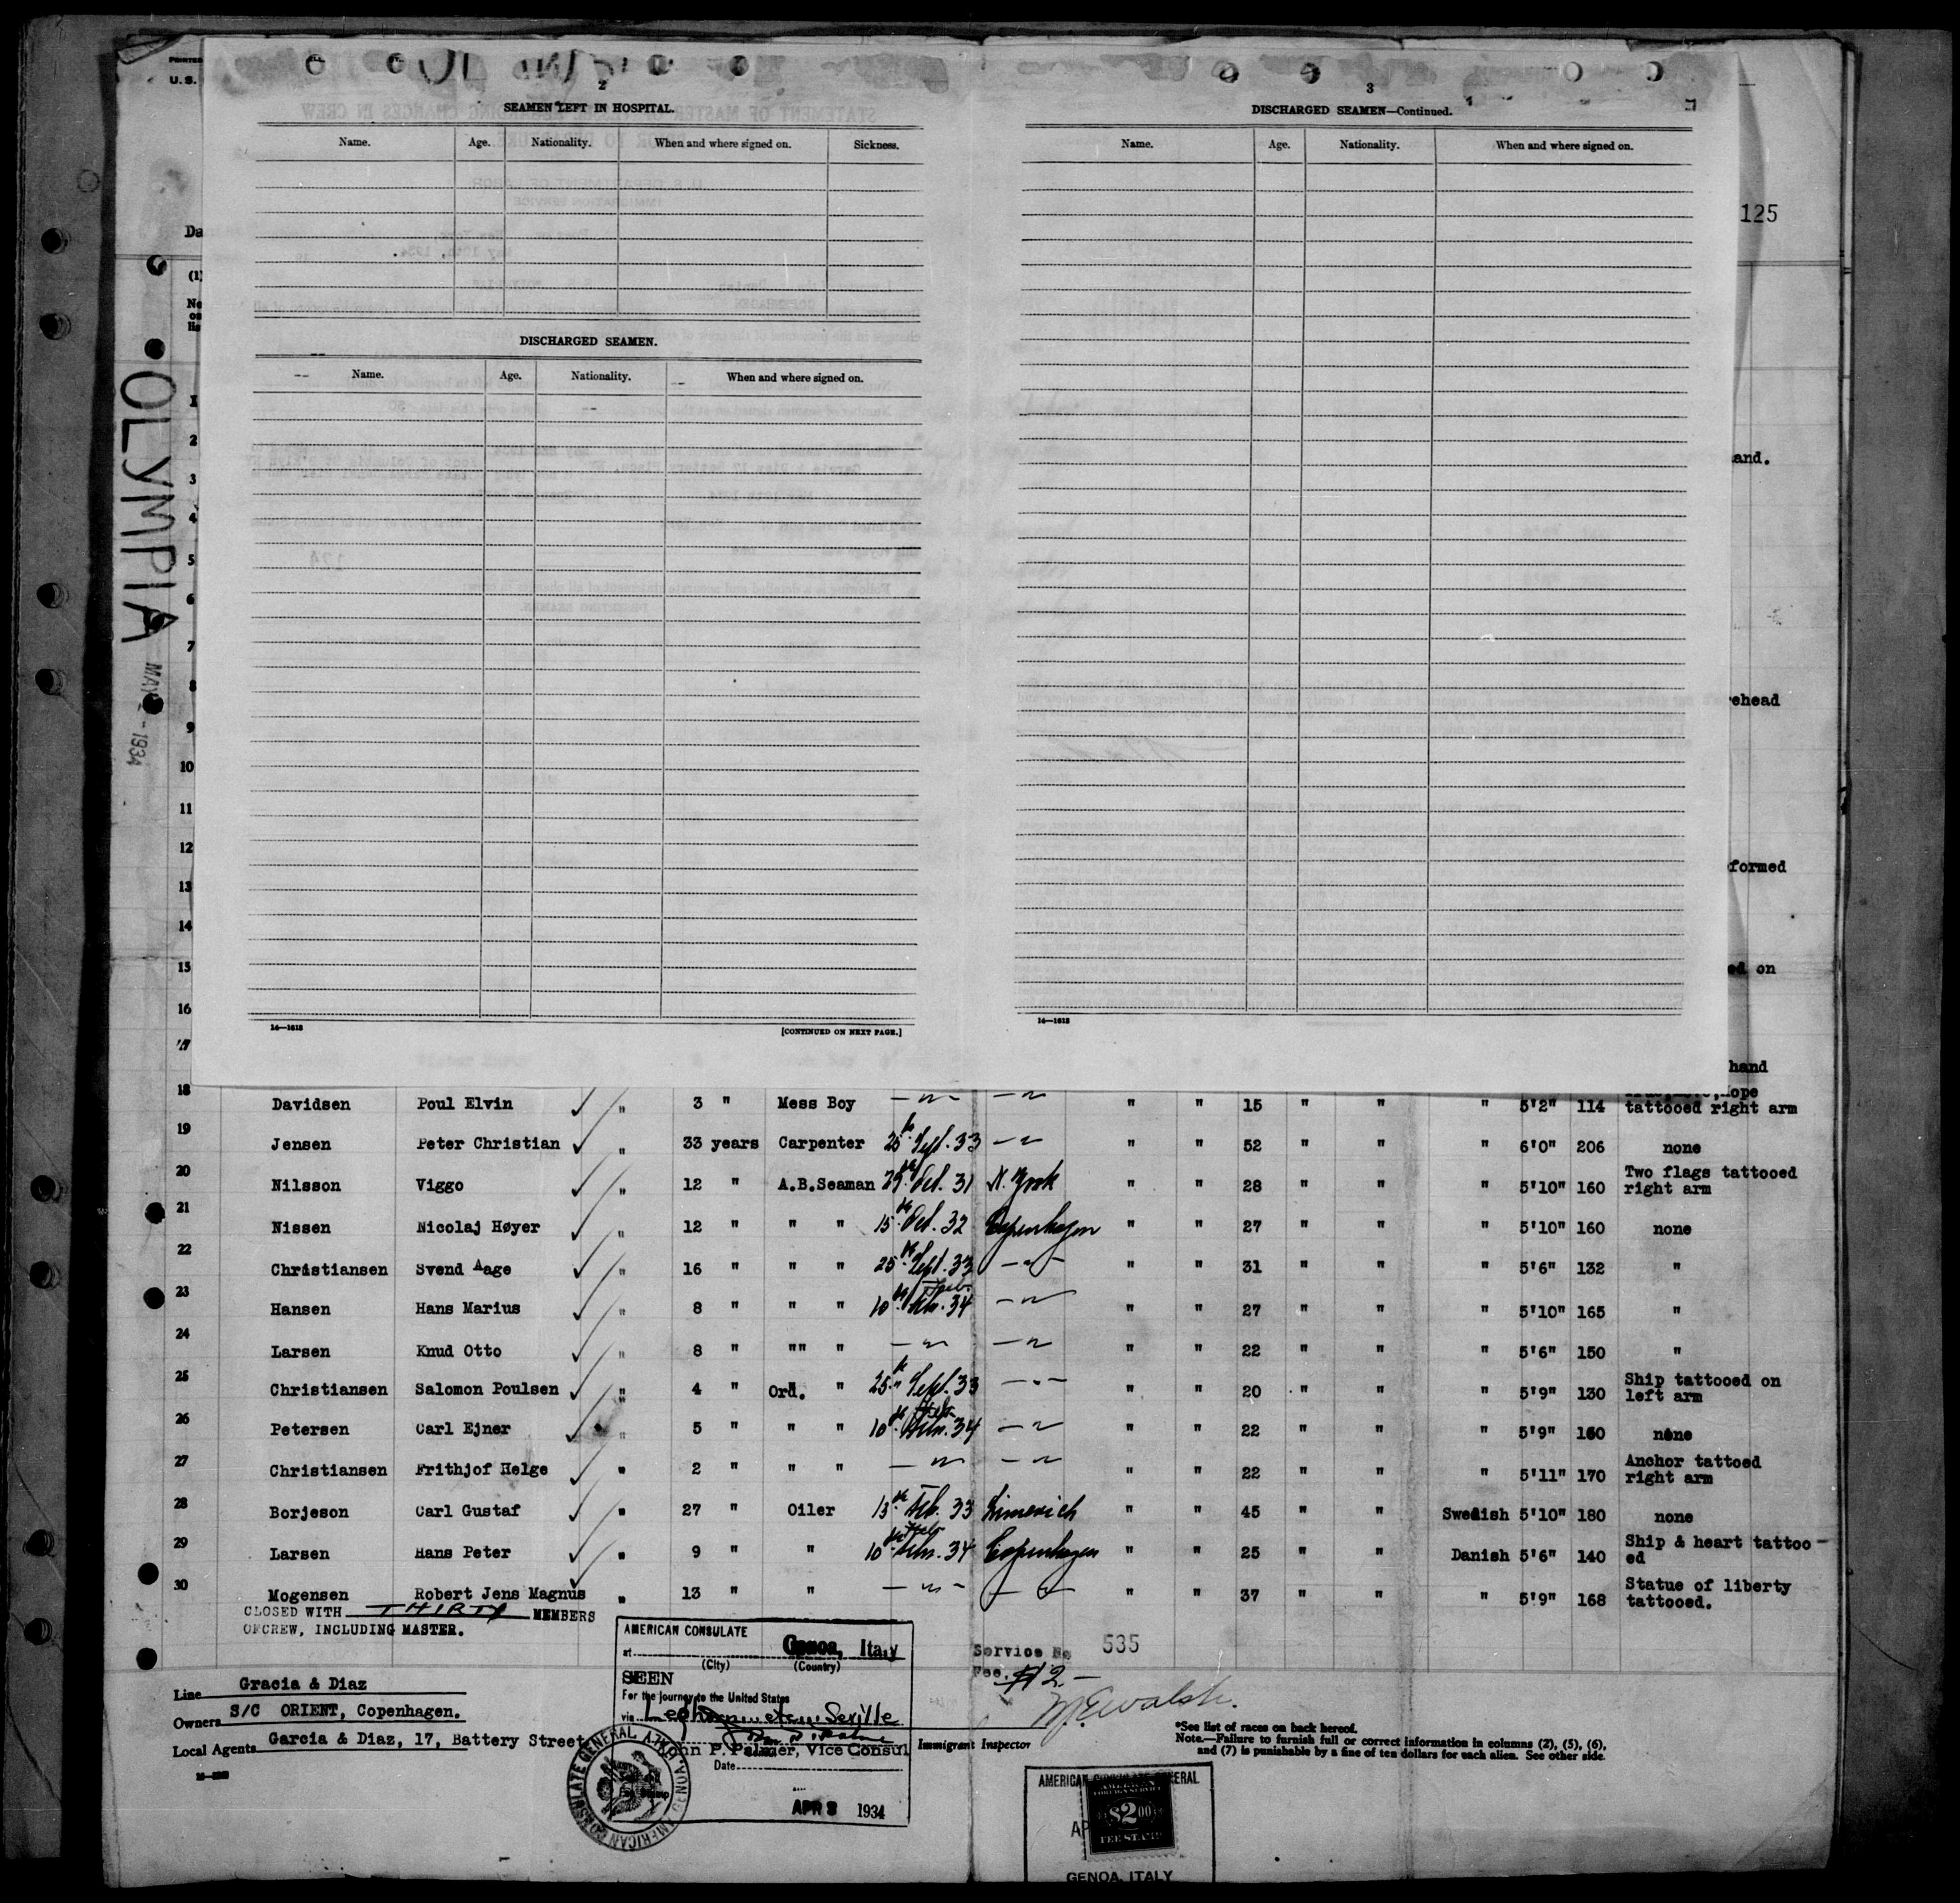 PRINTED
U. S.
2
SEAMEN LEFT IN HOSPITAL.
Name. Age. Nationality. When and where signed on. Sickness.
DISCHARGED SEAMEN.
Name. Age. Nationality. When and where signed on.
14—1618 [CONTINUED ON NEXT PAGE.]
3
DISCHARGED SEAMEN—Continued.
Name. Age. Nationality. When and where signed on.
14—1618
125
Da
(1)
No
on
OLYMPIA
MAY - 1934
1
2
3
4
5
6
7
8
9
10
11
12
13
14
15
16
17
and.
ehead
formed
ed on
hand
18 Davidsen Poul Elvin " 3 " Mess Boy —"— —"— " " 15 " " " 5'2" 114 tattooed right arm
19 Jensen Peter Christian " 33 years Carpenter 25th Sept. 33 —"— " " 52 " " " 6'0" 206 none
20 Nilsson Viggo " 12 " A.B.Seaman 29th Oct. 31 N. York " " 28 " " " 5'10" 160 Two flags tattooed right arm
21 Nissen Nicolaj Høyer " 12 " " " 15th Oct. 32 Copenhagen " " 27 " " " 5'10" 160 none
22 Christiansen Svend Aage " 16 " " " 25th Sept. 33 —"— " " 31 " " " 5'6" 132 "
23 Hansen Hans Marius " 8 " " " 10th Feb. 34 —"— " " 27 " " " 5'10" 165 "
24 Larsen Knud Otto " 8 " "" " —"— —"— " " 22 " " " 5'6" 150 "
25 Christiansen Salomon Poulsen " 4 " Ord. " 25th Sept. 33 —"— " " 20 " " " 5'9" 130 Ship tattooed on left arm
26 Petersen Carl Ejner " 5 " " " 10th Feb. 34 —"— " " 22 " " " 5'9" 160 none
27 Christiansen Frithjof Helge " 2 " " " —"— —"— " " 22 " " " 5'11" 170 Anchor tattoed right arm
28 Borjeson Carl Gustaf " 27 " Oiler 13th Feb. 33 Limerich " " 45 " " Swedish 5'10" 180 none
29 Larsen Hans Peter " 9 " " 10th Feb. 34 Copenhagen " " 25 " " Danish 5'6" 140 Ship & heart tattoo-ed
30 Mogensen Robert Jens Magnus " 13 " " —"— —"— " " 37 " " " 5'9" 168 Statue of liberty tattooed.
CLOSED WITH THIRTY MEMBERS
OFCREW, INCLUDING MASTER.
Line Gracia & Diaz
Owners S/C ORIENT, Copenhagen.
Local Agents Garcia & Diaz, 17, Battery Street
AMERICAN CONSULATE
at Genoa, Italy
(City) (Country)
SEEN
For the journey to the United States
via Leghorn etc. Seville
John P. Palmer, Vice Consul
Date
APR 3 1934
AMERICAN CONSULATE GENERAL GENOA
Service No 535
Fee, $2.-
M. E. Walsh.
Immigrant Inspector
*See list of races on back hereof.
Note.—Failure to furnish full or correct information in columns (2), (5), (6),
and (7) is punishable by a fine of ten dollars for each alien. See other side.
AMERICAN CONSULATE GENERAL
AMERICAN
FOREIGN SERVICE
$2.00
FEE STAMP
AP
GENOA, ITALY